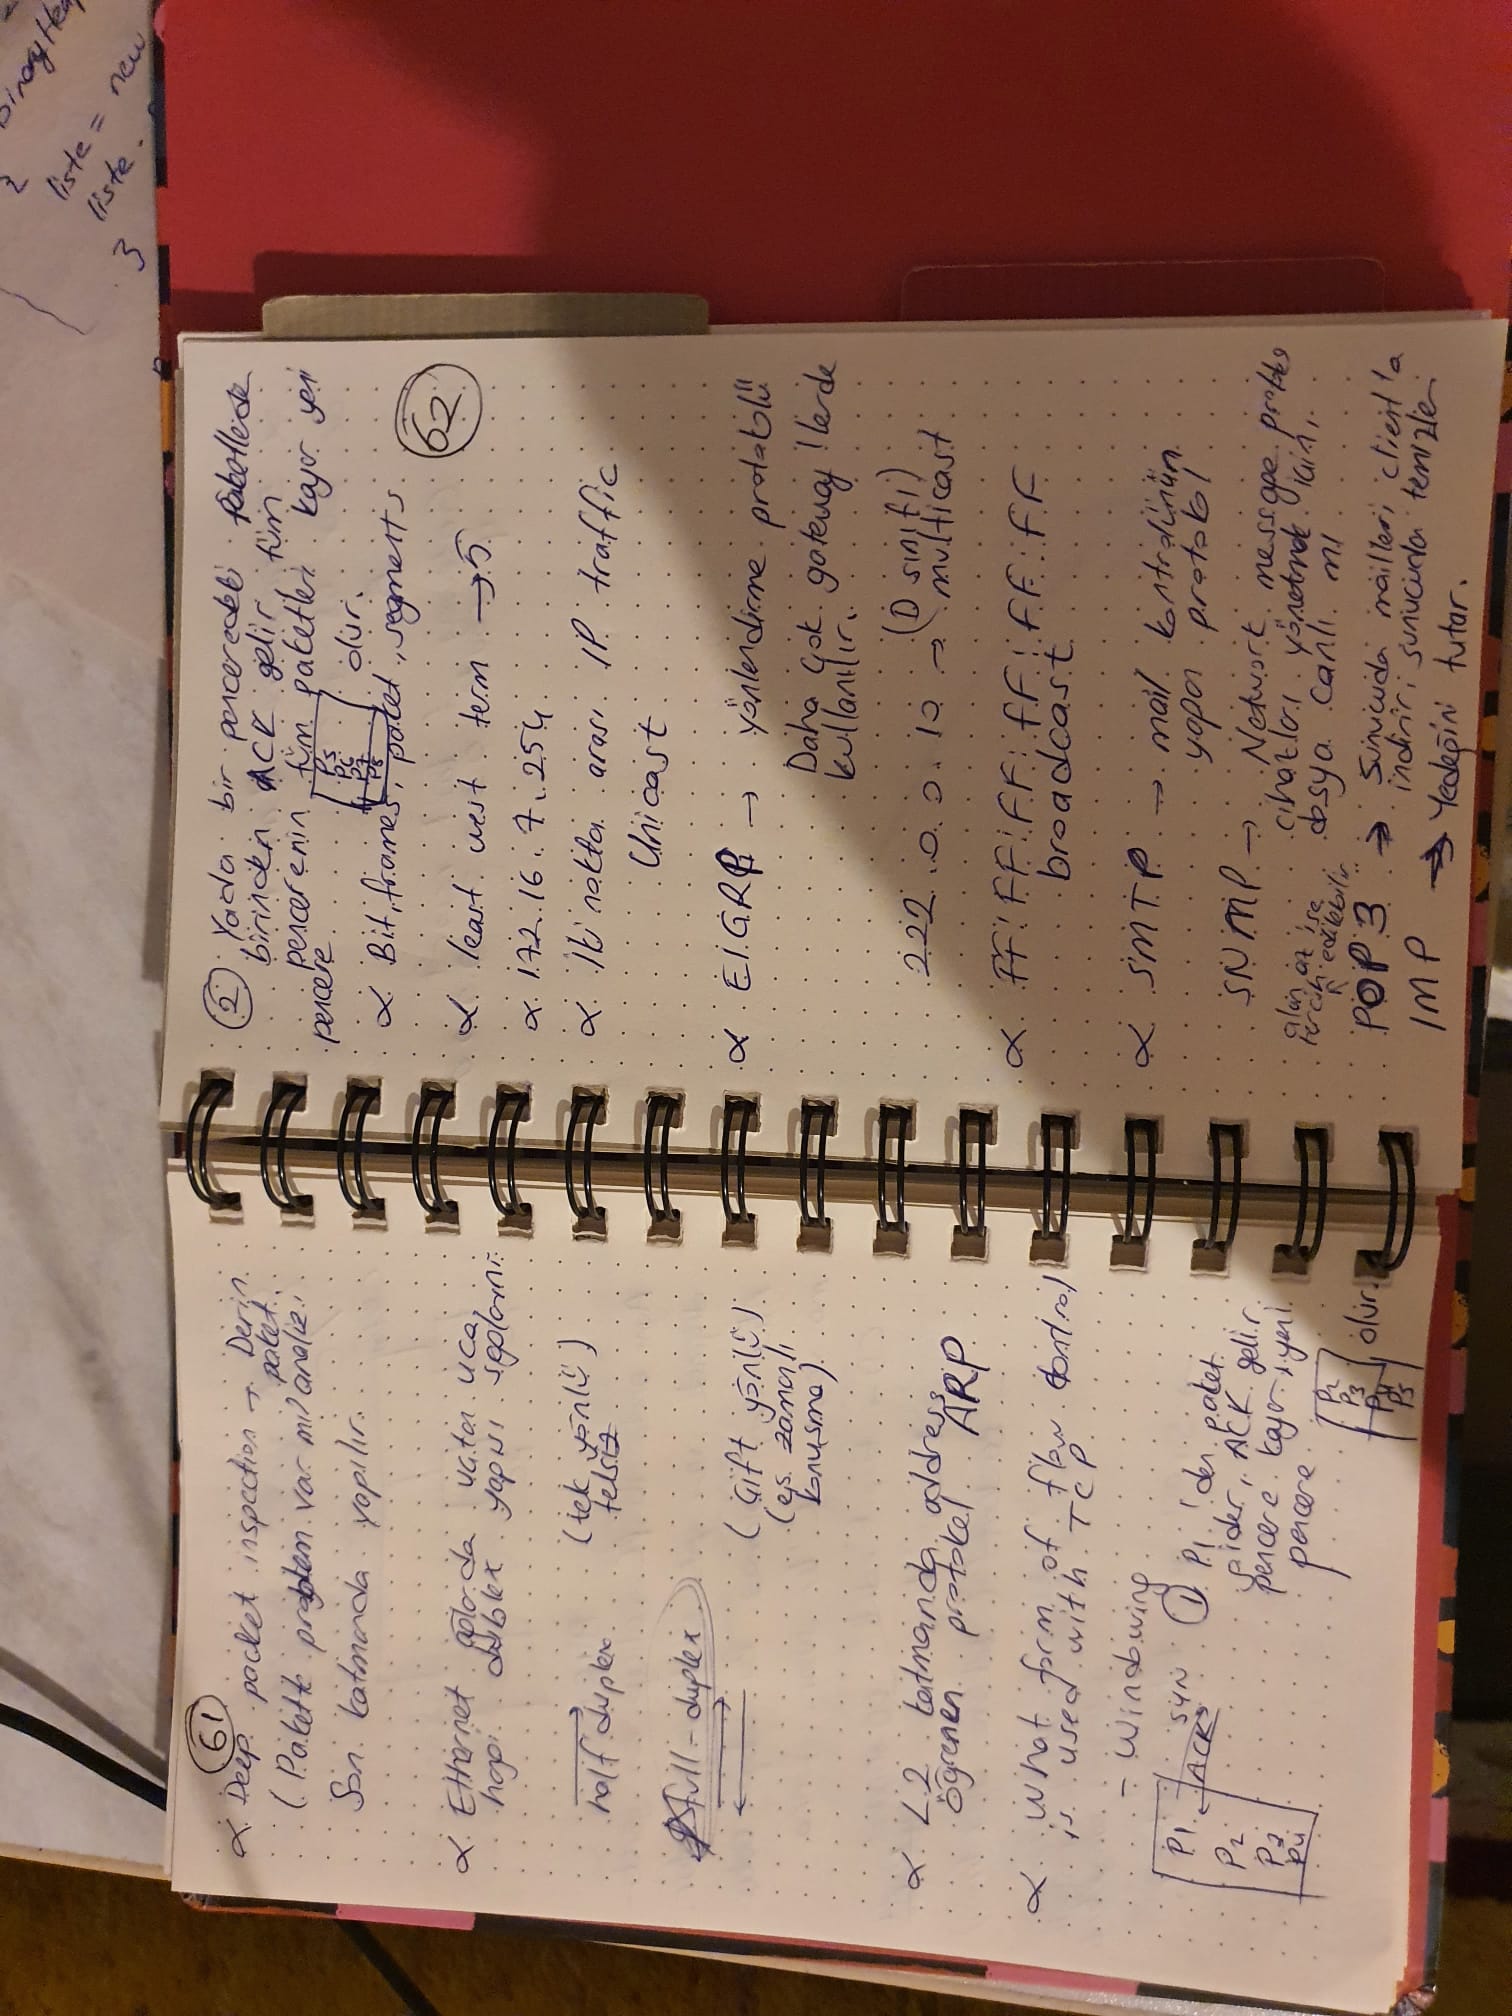 61
α Deep packet inspection → Derin
paket
( Pakette problem var mı? analizi
Son katmanda yapılır.
α Ethernet ağlarda uçtan uca
hangi dublex yapısı sağlanır:
half duplex (tek yönlü)
telsiz
full-duplex
(Çift yönlü)
(eş zamanlı
konuşma)
α L2 katmanda address
öğrenen protokol ARP
α What form of flow control
is used with TCP
- Windowing
P1
P2
P3
P4
SYN
ACK
① P1 'den paket
gider, ACK gelir
pencere kayar, yeni
pencere
P2
P3
P4
P5
olur.
② Yada bir penceredeki paketlerde
birinden ACK gelir, tüm
pencerenin tüm paketleri kayar yeni
pencere
P5
P6
P7
P8
olur.
α Bit, frames, paket, segments
62
α least west term → 5
α 172.16.7.254
α İki nokta arası IP traffic
Unicast
α EIGRP → yönlendirme protokolü
Daha çok gateway 'lerde
kullanılır.
222.0.0.10 → (D sınıfı)
multicast
α FF:FF:FF:FF:FF:FF
broadcast
α SMTP → mail kontrolünün
yapan protokol
SNMP → Network message
cihazları yönetmek için,
dosya canlı mı
alan az ise
tercih edilebilir
POP3 → Sunucuda mailleri client'a
indirir; sunucuda temizler
IMP → Yedeğini tutar.
2 binaryHeap
liste = new
liste.
3